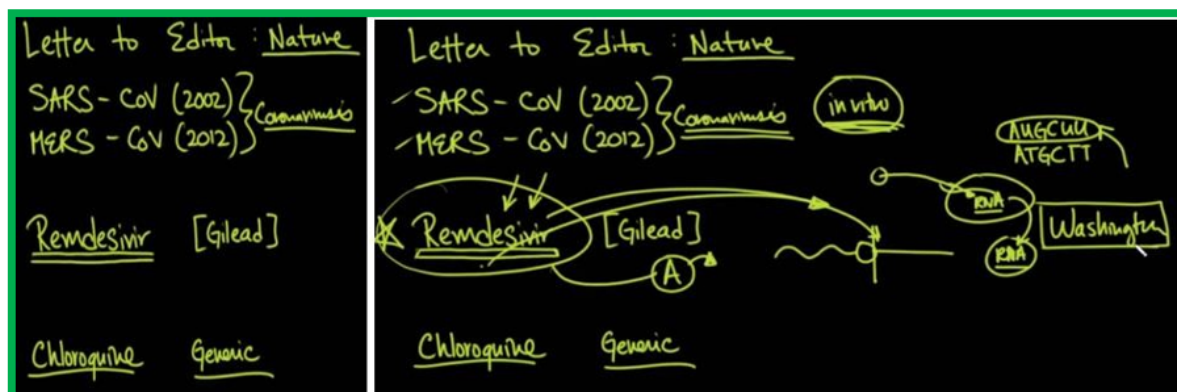 Letter to Editor : Nature
SARS - CoV (2002)
MERS - CoV (2012)
Coronavirusis
Remdesivir [Gilead]
Chloroquine Generic
Letter to Editor : Nature
SARS - CoV (2002)
MERS - CoV (2012)
Coronavirusis
in vitro
AUGCUU
ATGCTT
RNA
Remdesivir [Gilead]
Washington
A
RNA
Chloroquine Generic